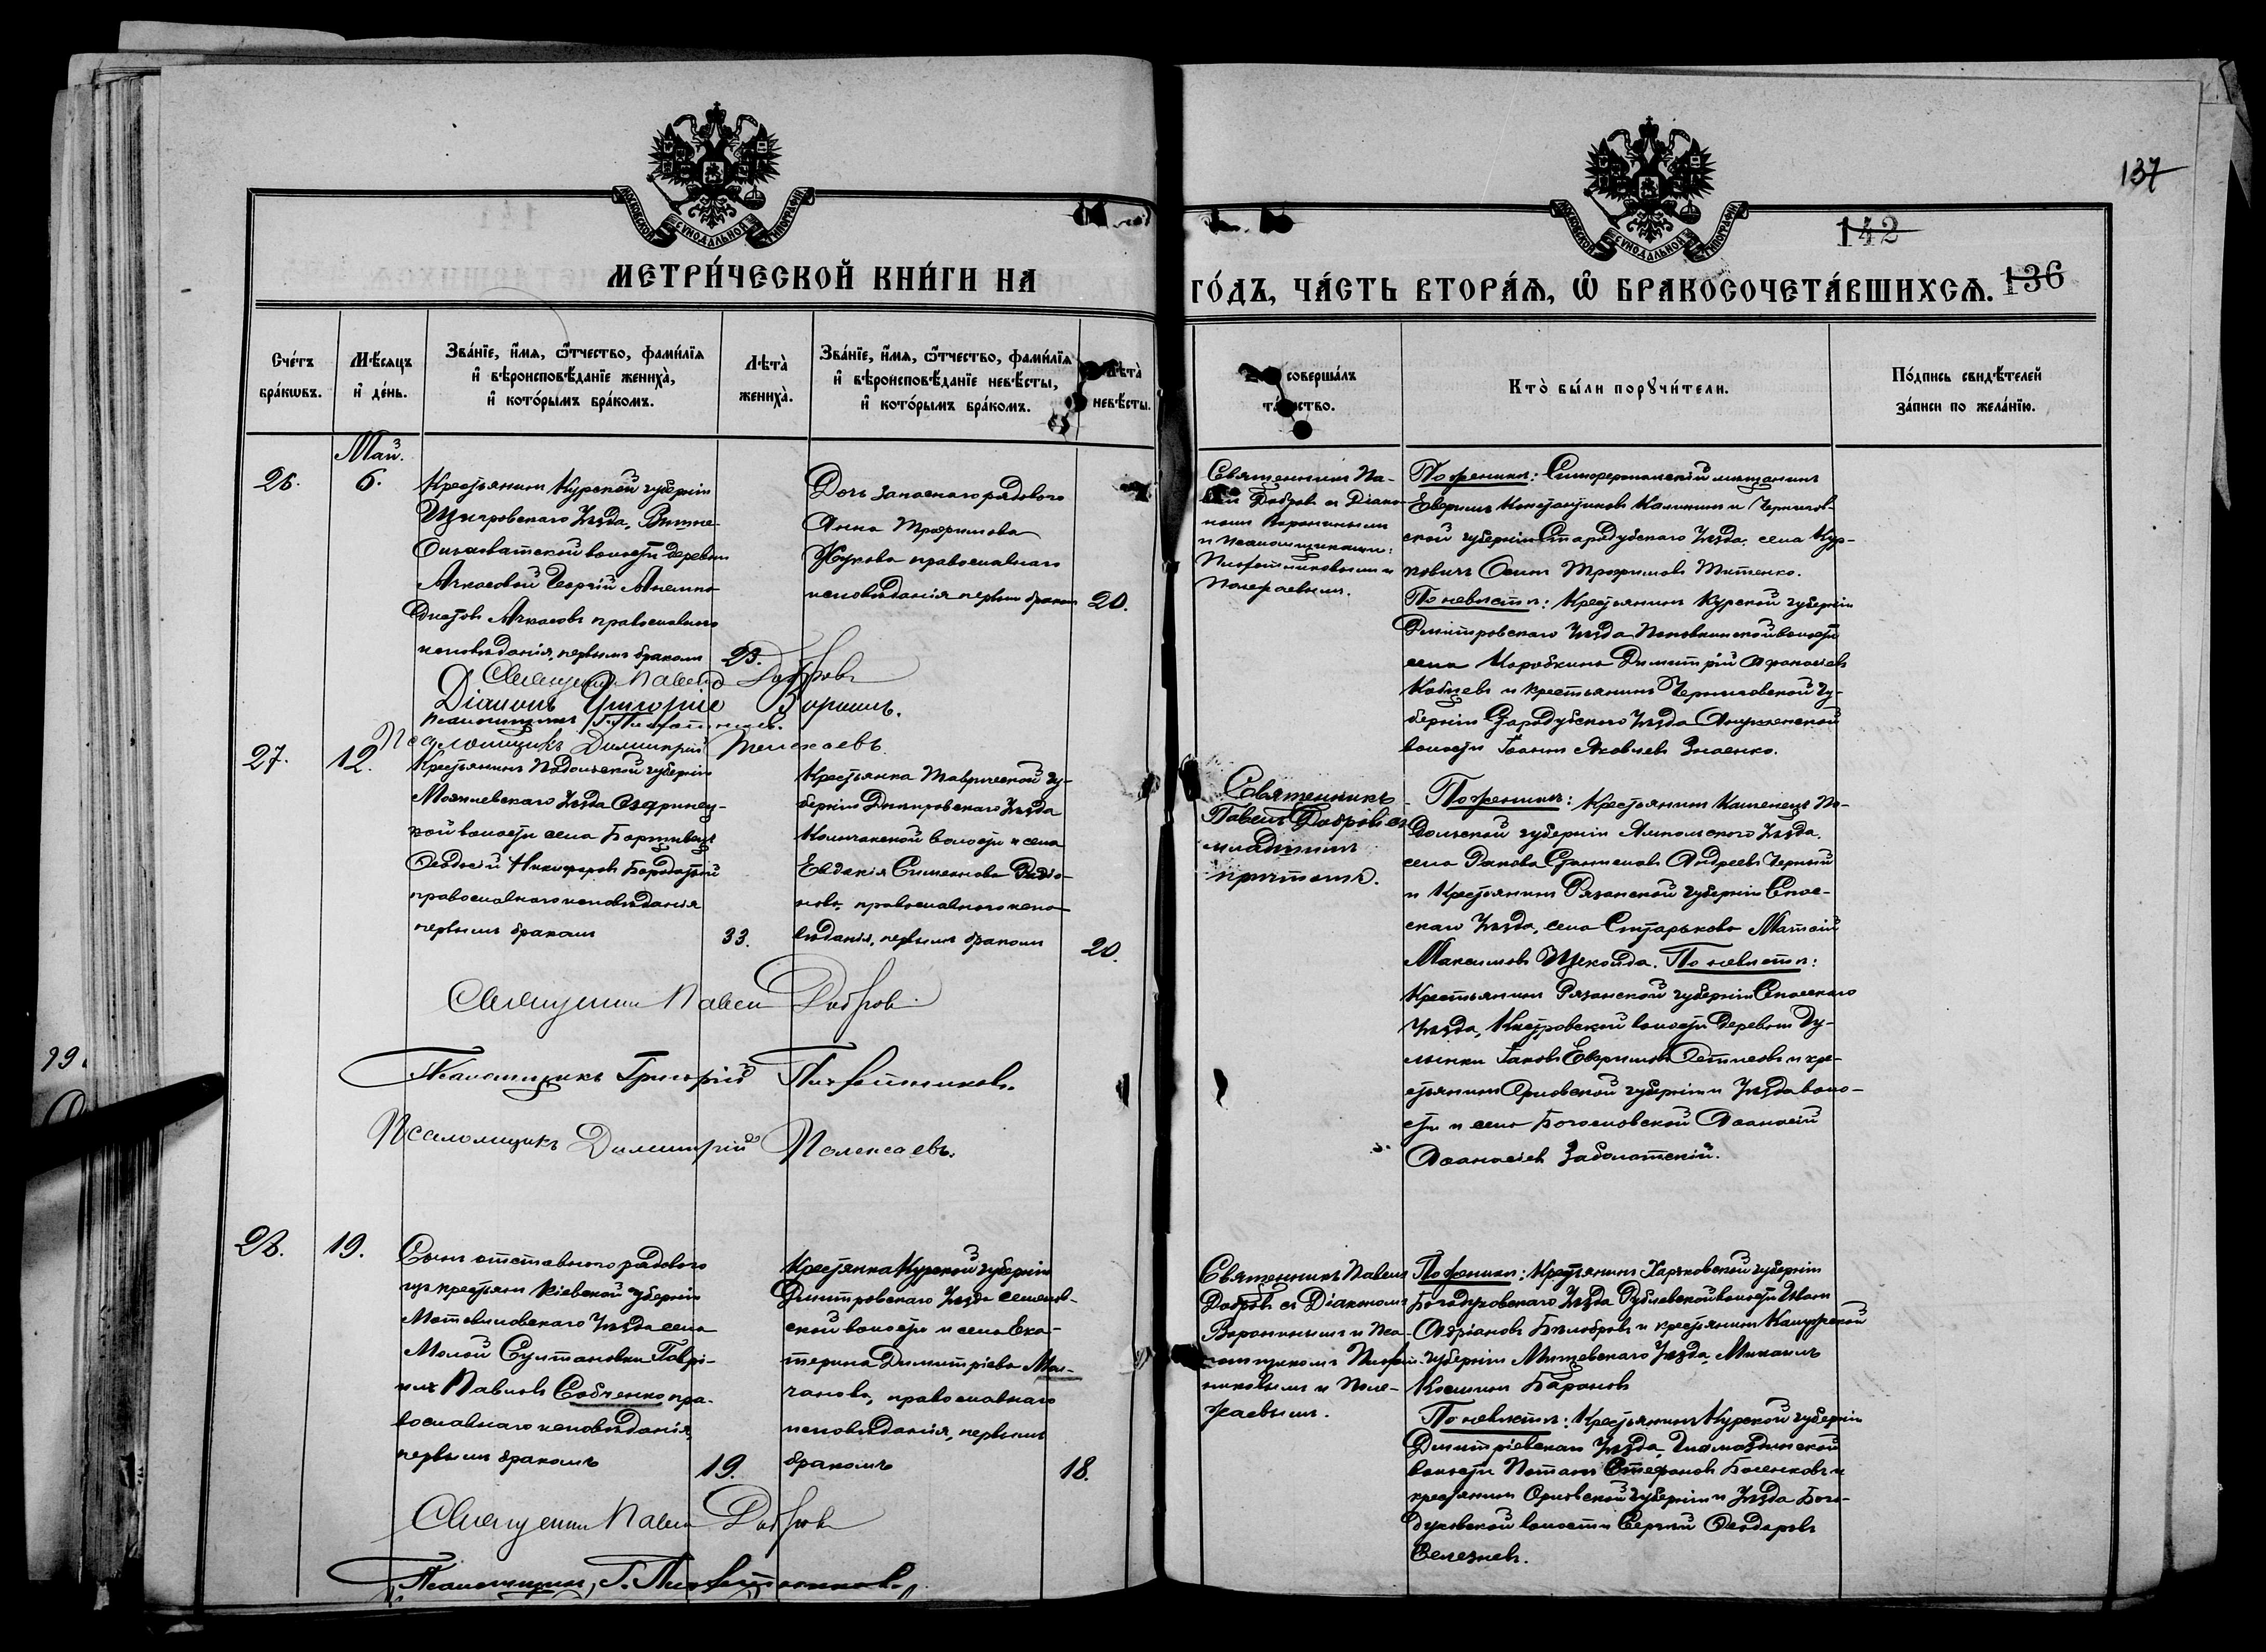 137
142
136
МЕТРИ́ЧЕСКОЙ КНИ́ГИ НА
ГО́ДЪ, ЧА́СТЬ ВТОРА́Ѧ, Ѡ҆ БРАКОСОЧЕТА́ВШИХСѦ.
Сче́тъ бра́кѡвъ.
Мѣ́сяцъ и҆ де́нь.
Зва́нїе, и҆́мѧ, ѻ҆́тчество, фами́лїѧ
и҆ вѣроисповѣ́данїе жениха̀,
и҆ кото́рымъ бра́комъ.
Лѣта̀ жениха̀.
Зва́нїе, и҆́мѧ, ѻ҆́тчество, фами́лїѧ
и҆ вѣроисповѣ́данїе невѣ́сты,
и҆ кото́рымъ бра́комъ.
Лѣта̀ невѣ́сты.
соверша́лъ
Кто̀ бы́ли порꙋчи́тели.
По́дпись свидѣ́телей
за́писи по жела́нїю.
Май.
26.
6.
Крестьянинъ Курской губерніи
Щигровскаго Уѣзда, Вышне-
волости деревни
Алкасовой Георгій
Алкасовъ православнаго
исповѣданія, первымъ бракомъ
23.
Дочь запаснаго рядового
Анна Трофимова
Жукова православнаго
исповѣданія первым браком
20.
Священникъ Па-
велъ Добровъ съ Діако-
номъ Воронинымъ
и псаломщиками:
По женихѣ: Симферопольскій мѣщанинъ
Калинин и Чернигов-
ской губерніи Стародубскаго Уѣзда, села Кур-
ковичъ Осипъ Трофимовъ Титенко.
По невѣстѣ: Крестьянинъ Курской губерніи
Дмитровскаго Уѣзда волости
села Коробкино Димитрій Афанасіевъ
Кобцевъ и крестьянинъ Черниговской гу-
берніи Стародубскаго Уѣзда
волости Іоаннъ Яковлевъ Знаенко.
Священникъ Павелъ Добровъ
Діаконъ Григорій Воронинъ.
Псаломщикъ Г.
Псаломщикъ Димитрій
27.
12.
Крестьянинъ Подольской губерніи
Могилевскаго Уѣзда Озаринец-
кой волости села
Ѳеодосій Никифоровъ Бородатый
православнаго исповѣданія
первымъ бракомъ
33.
Крестьянка Таврической гу-
берніи Днѣпровскаго Уѣзда
Колончакской волости и села
Евдокія Симеонова Родіо-
нова, православнаго испо-
вѣданія, первымъ бракомъ
20.
Священникъ
Павелъ Добровъ съ
младшимъ
причтомъ.
По женихѣ: Крестьянинъ Каменецъ По-
дольской губерніи Ямпольскаго Уѣзда,
села Андреевъ Черный
и Крестьянинъ Рязанской губерніи Спас-
скаго Уѣзда, села Старькова Матѳій
Максимовъ Щеколда. По невѣстѣ:
Крестьянинъ Рязанской губерніи Спасскаго
Уѣзда, волости деревни Ду-
лынки Іаковъ и кре-
стьянинъ Орловской губерніи и Уѣзда воло-
сти и села Богословской Аѳанасій
Аѳанасіевъ Заболотскій.
Священникъ Павелъ Добровъ
Псаломщикъ Григорій
Псаломщикъ Димитрій
28.
19.
Сынъ отставного рядового
изъ крестьян Кіевской губерніи
Уѣзда села
Малой Султановки Гаврі-
илъ Павловъ Собченко пра-
вославнаго исповѣданія,
первымъ бракомъ
19.
Крестьянка Курской губерніи
Дмитровскаго Уѣзда
ской волости и села Ека-
терина Димитріева Мол-
чанова, православнаго
исповѣданія, первымъ
бракомъ
18.
Священникъ Павелъ
Добровъ съ Діакономъ
Воронинымъ и Пса-
ломщикомъ
никовымъ и
По женихѣ: Крестьянинъ Харьковской губерніи
Богодуховскаго Уѣзда Рублевской волости Иванъ
Адріановъ Бѣлобровъ и крестьянинъ Калужской
губерніи Мещевскаго Уѣзда, Михаилъ
Косминъ Бароновъ
По невѣстѣ: Крестьянинъ Курской губерніи
Дмитріевскаго Уѣзда,
волости Потапъ Стефановъ Боленковъ и
крестьянинъ Орловской губерніи и Уѣзда Бого-
духовской волости Сергѣй Ѳеодоровъ
Селезневъ.
Священникъ Павелъ Добровъ
Псаломщикъ Г.